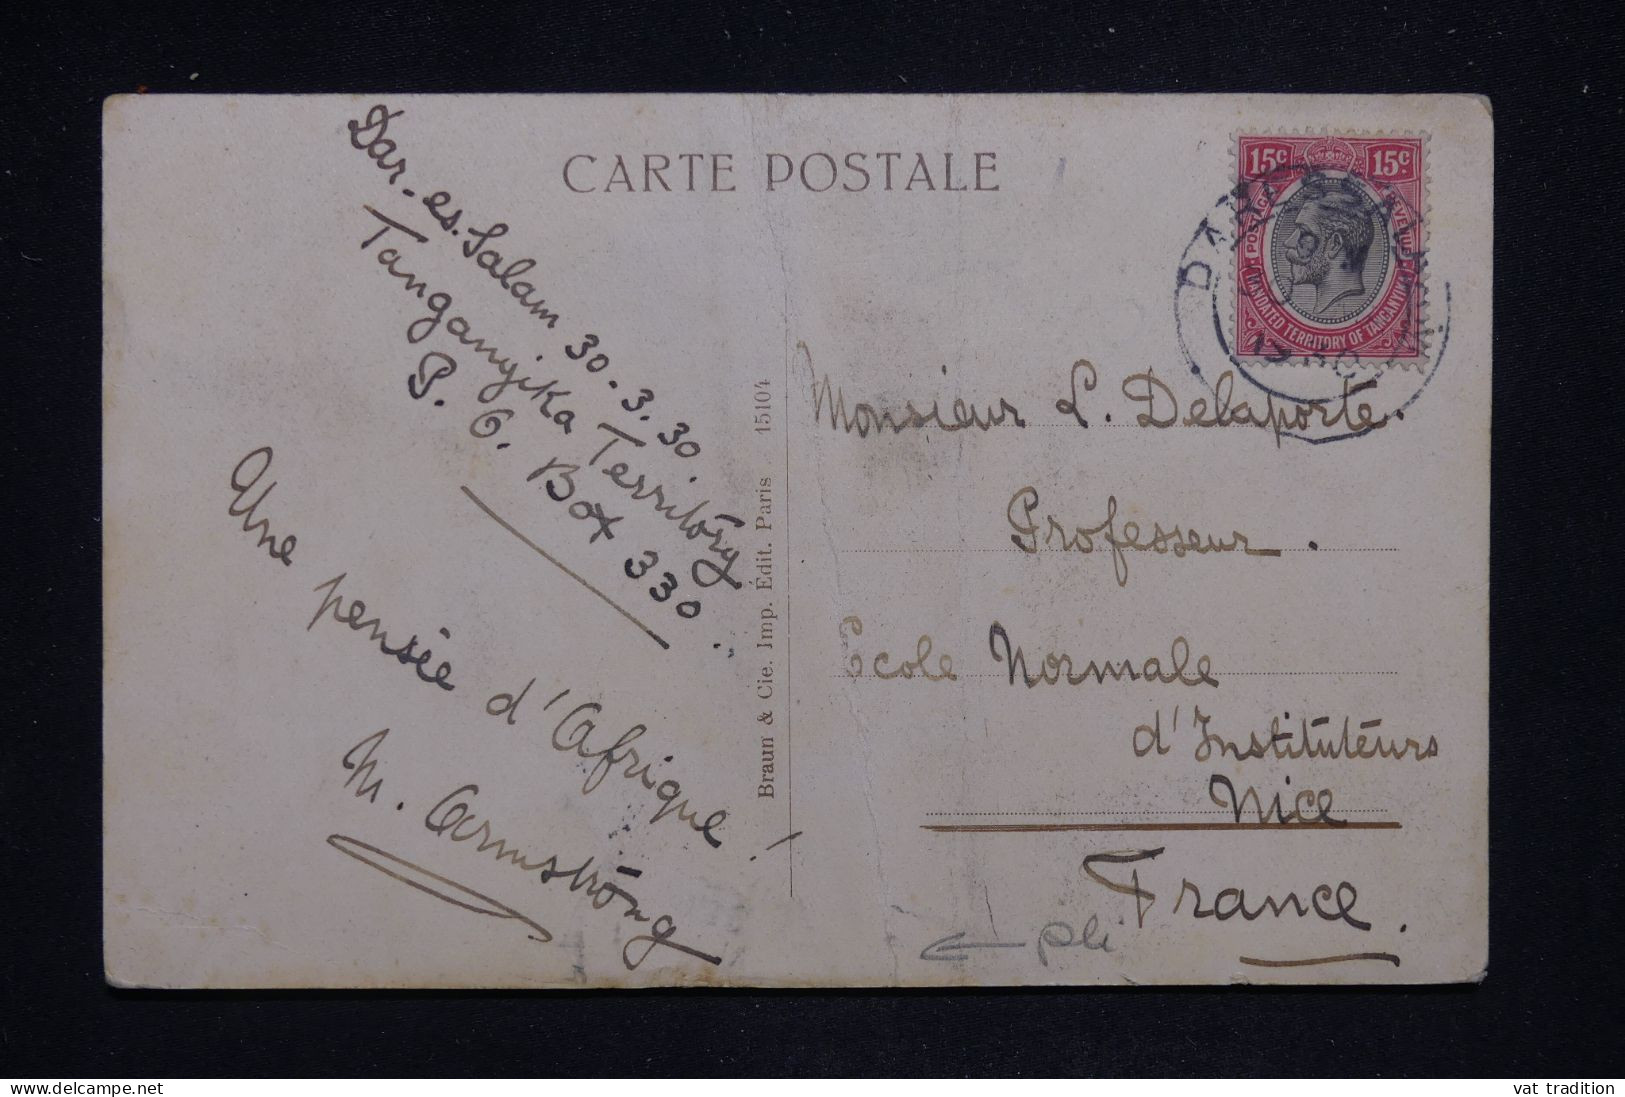 CARTE POSTALE
Dar-es-Salam 30.3.30.
Tanganyika Territory
P. O. Box 330.
Une pensée d'Afrique!
M. Armstrong
Braun & Cie. Imp. Édit. Paris 15104
15c 15c
POSTAGE REVENUE
MANDATED TERRITORY OF TANGANYIKA
Monsieur L. Delaporte.
Professeur.
Ecole Normale
d'Instituteurs
Nice
France.
pli
www.delcampe.net
vat tradition